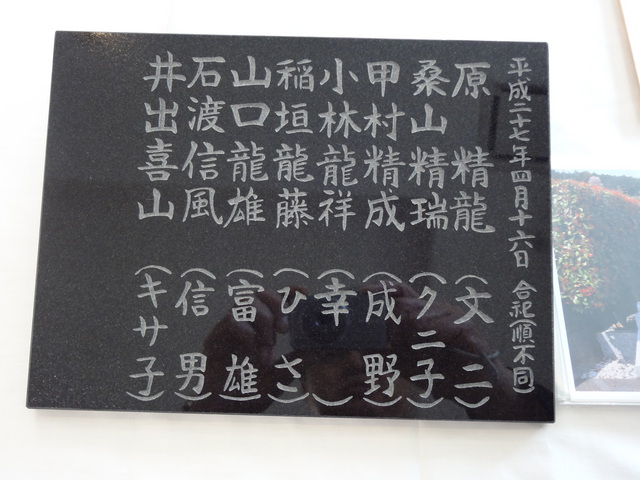 平成二十七年四月十六日 合祀(順不同)
原 精龍 (文二)
桑山精瑞 (クニ子)
甲村精成 (成野)
小林龍祥 (幸)
稲垣龍藤 (ひさ)
山口龍雄 (富雄)
石渡信風 (信男)
井出喜山 (キサ子)